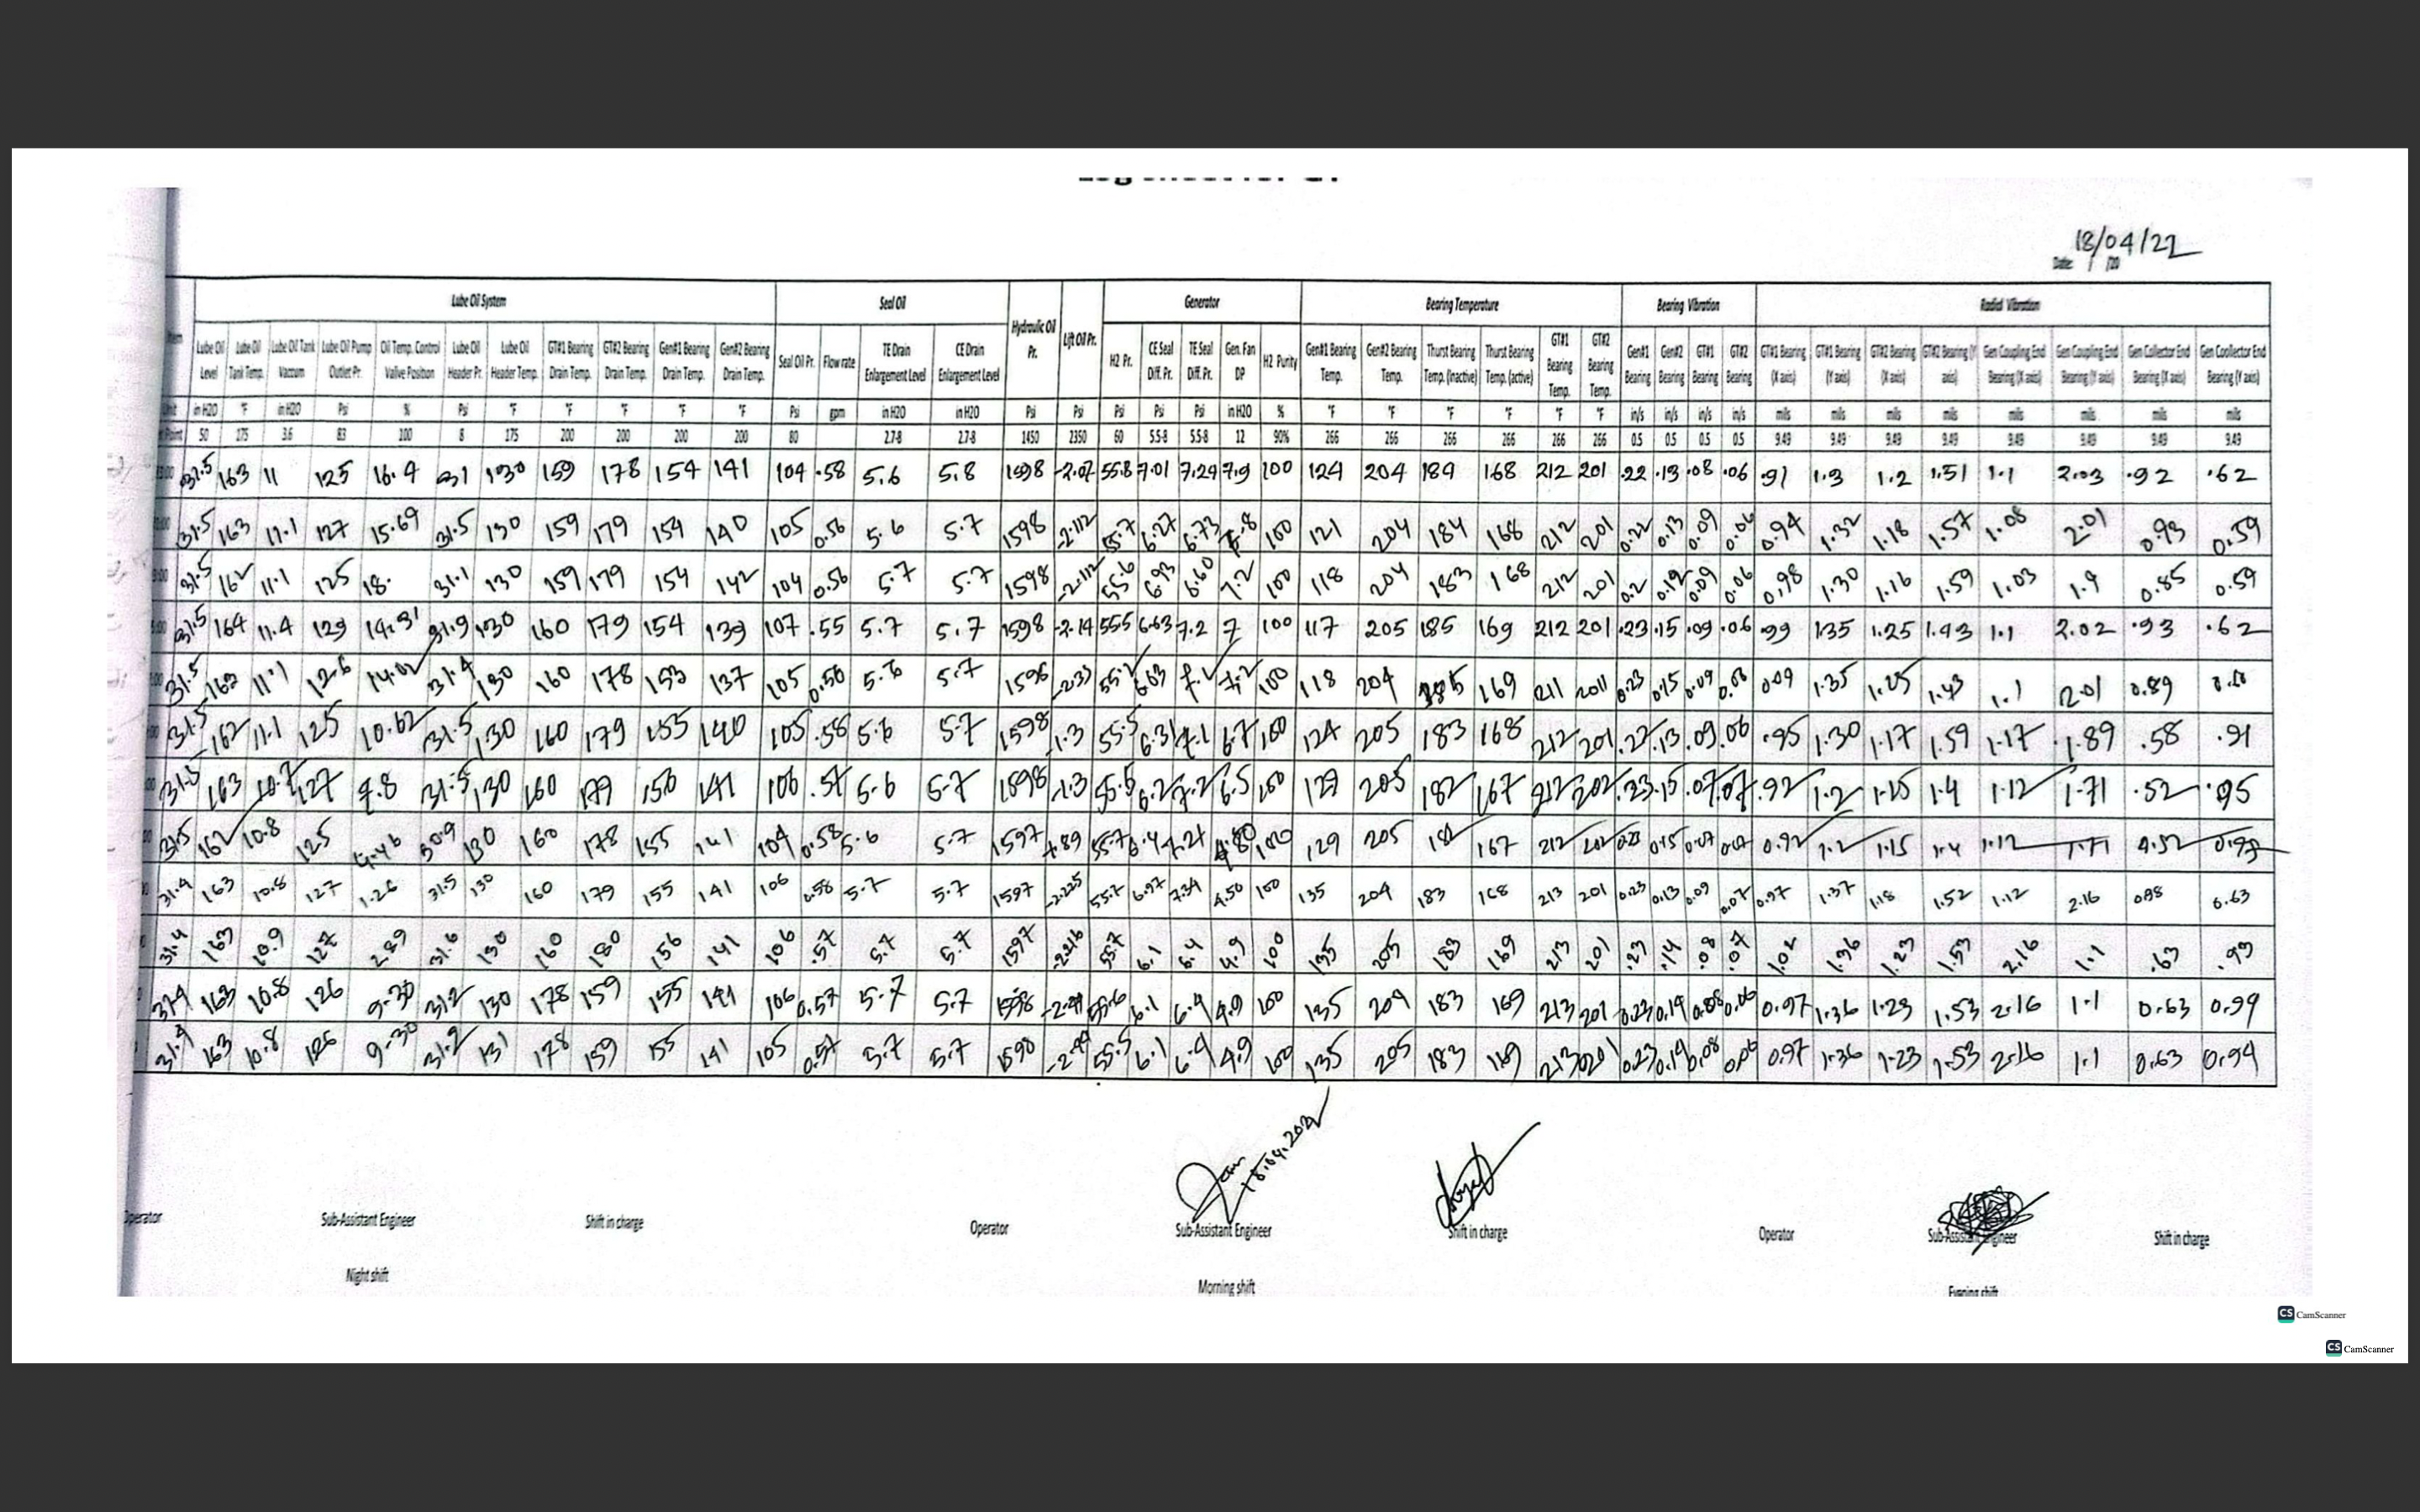 18/04/22
Date: / /20
Lube Oil System Seal Oil Hydraulic Oil Pr. Lift Oil Pr. Generator Bearing Temperature Bearing Vibration Radial Vibration
Lube Oil Level Lube Oil Tank Temp. Lube Oil Tank Vaccum Lube Oil Pump Outlet Pr. Oil Temp. Control Valive Position Lube Oil Header Pr. Lube Oil Header Temp. GT#1 Bearing Drain Temp. GT#2 Bearing Drain Temp. Gen#1 Bearing Drain Temp. Gen#2 Bearing Drain Temp. Seal Oil Pr. Flow rate TE Drain Enlargement Level CE Drain Enlargement Level H2 Pr. CE Seal Diff. Pr. TE Seal Diff. Pr. Gen. Fan DP H2 Purity Gen#1 Bearing Temp. Gen#2 Bearing Temp. Thurst Bearing Temp. (inactive) Thurst Bearing Temp. (active) GT#1 Bearing Temp. GT#2 Bearing Temp. Gen#1 Bearing Gen#2 Bearing GT#1 Bearing GT#2 Bearing GT#1 Bearing (X axis) GT#1 Bearing (Y axis) GT#2 Bearing (X axis) GT#2 Bearing (Y axis) Gen Coupling End Bearing (X axis) Gen Coupling End Bearing (Y axis) Gen Collector End Bearing (X axis) Gen Coollector End Bearing (Y axis)
in H2O °F in H2O Psi % Psi °F °F °F °F °F Psi gpm in H2O in H2O Psi Psi Psi Psi Psi in H2O % °F °F °F °F °F °F in/s in/s in/s in/s mils mils mils mils mils mils mils mils
50 175 3.6 83 100 8 175 200 200 200 200 80 2.7-8 2.7-8 1450 2350 60 5.5-8 5.5-8 12 90% 266 266 266 266 266 266 0.5 0.5 0.5 0.5 9.49 9.49 9.49 9.49 9.49 9.49 9.49 9.49
31.5 163 11 125 16.4 31 130 159 178 154 141 104 .58 5.6 5.8 1598 -2.07 55.8 7.01 7.29 7.9 100 124 204 184 168 212 201 .22 .13 .08 .06 .91 1.3 1.2 1.51 1.1 2.03 .92 .62
31.5 163 11.1 127 15.69 31.5 130 159 179 154 140 105 0.56 5.6 5.7 1598 -2.112 55.7 6.27 6.73 100 121 204 184 168 212 201 0.22 0.13 0.09 0.06 0.94 1.32 1.18 1.57 1.08 2.01 0.93 0.59
31.5 162 11.1 125 18. 31.1 130 159 179 154 142 104 0.56 5.7 5.7 1598 -2.112 55.6 6.93 6.60 7.2 100 118 204 183 168 212 201 0.2 0.12 0.09 0.06 0.98 1.30 1.16 1.59 1.03 1.9 0.85 0.59
31.5 164 11.4 129 14.31 31.9 130 160 179 154 139 107 .55 5.7 5.7 1598 -2.14 555 6.63 7.2 7 100 117 205 185 169 212 201 .23 .15 .09 .06 .99 1.35 1.25 1.43 1.1 2.02 .93 .62
31.5 163 11.1 126 14.02 31.4 130 160 178 153 137 105 0.56 5.6 5.7 1596 -2.33 55.2 6.63 7.1 7.2 100 118 204 185 169 211 2011 0.23 0.15 0.09 0.09 1.35 1.25 1.43 1.1 2.01 0.89
31.5 162 11.1 125 10.62 31.5 130 160 179 155 140 105 .58 5.6 5.7 1598 -1.3 55.5 6.3 7.1 6.7 100 124 205 183 168 212 201 .22 .13 .09 .06 .95 1.30 1.17 1.59 1.17 1.89 .58 .91
31.5 163 10.7 127 9.8 31.5 130 160 179 156 141 106 .57 5.6 5.7 1598 -1.3 55.5 6.2 7.2 6.5 100 129 205 182 167 212 202 .23 .15 .07 .07 .92 1.2 1.15 1.4 1.12 1.71 .52 .95
31.5 162 10.8 125 4.46 30.9 130 160 178 155 141 104 0.58 5.6 5.7 1597 55.7 6.4 7.21 4.80 100 129 205 182 167 212 202 0.23 0.15 0.07 0.07 0.92 1.2 1.15 1.4 1.12 1.71
31.4 163 10.8 127 1.26 31.5 130 160 179 155 141 106 0.58 5.7 5.7 1597 -2.225 55.7 6.97 7.34 4.50 100 135 204 183 168 213 201 0.23 0.13 0.09 0.07 0.97 1.37 1.18 1.52 1.12 2.16 0.98 0.63
31.4 163 10.9 127 2.89 31.6 130 160 180 156 141 106 .57 5.7 5.7 1597 -2.216 55.7 6.1 6.4 4.9 100 135 205 183 169 213 201 .23 .14 .08 .07 1.02 1.36 1.23 1.53 2.16 1.1 .63 .93
31.4 163 10.8 126 9.30 31.2 130 178 159 155 141 106 0.57 5.7 5.7 1598 55.6 6.1 6.4 4.9 100 135 204 183 169 213 201 0.23 0.14 0.08 0.06 0.97 1.36 1.23 1.53 2.16 1.1 0.63 0.94
31.4 163 10.8 126 9.30 31.2 131 178 159 155 141 105 0.57 5.7 5.7 1598 55.5 6.1 6.4 4.9 100 135 205 183 169 213 201 0.23 0.14 0.08 0.06 0.97 1.36 1.23 1.53 2.16 1.1 0.63 0.94
18.04.2022
Operator Sub-Assistant Engineer Shift in charge Operator Sub-Assistant Engineer Shift in charge Operator Sub-Assistant Engineer Shift in charge
Night shift Morning shift Evening shift
CS CamScanner
CS CamScanner